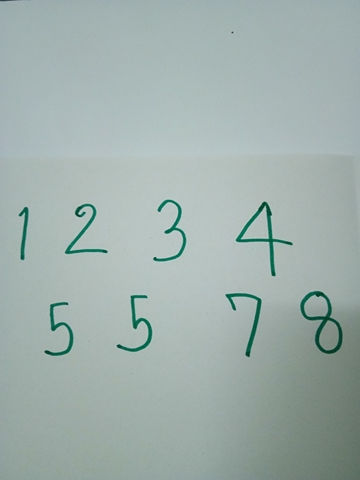 1 2 3 4
5 5 7 8